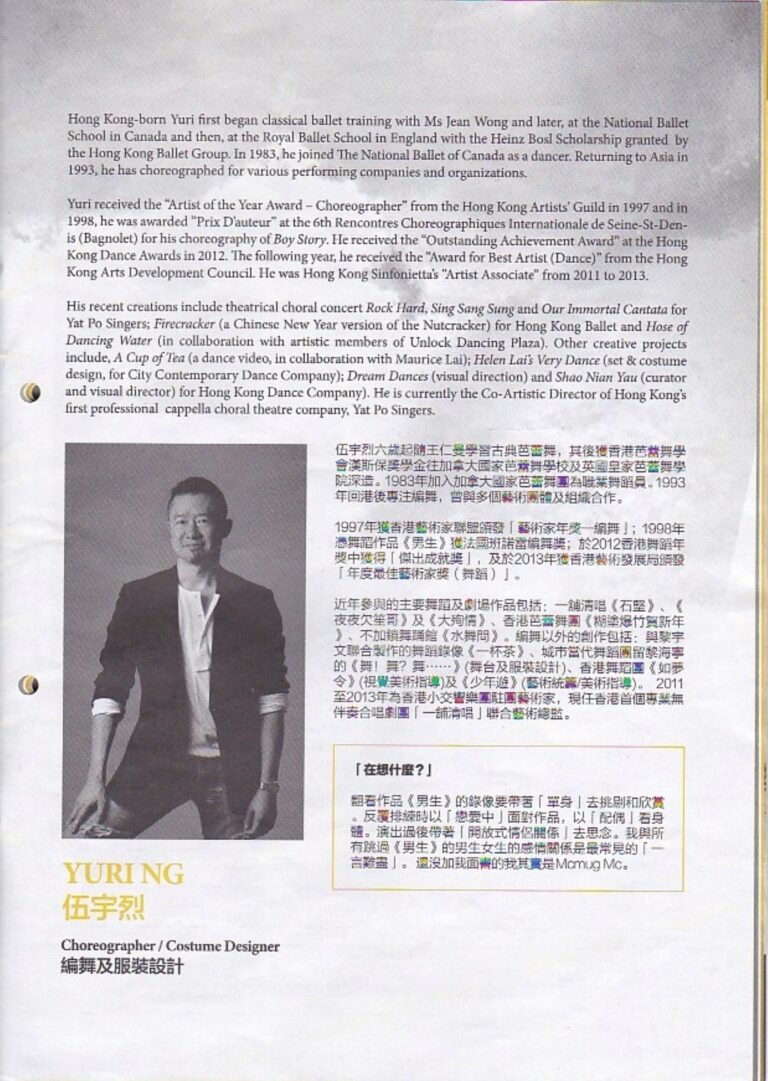 Hong Kong-born Yuri first began classical ballet training with Ms Jean Wong and later, at the National Ballet
School in Canada and then, at the Royal Ballet School in England with the Heinz Bosl Scholarship granted by
the Hong Kong Ballet Group. In 1983, he joined The National Ballet of Canada as a dancer. Returning to Asia in
1993, he has choreographed for various performing companies and organizations.
Yuri received the “Artist of the Year Award – Choreographer” from the Hong Kong Artists’ Guild in 1997 and in
1998, he was awarded “Prix D’auteur” at the 6th Rencontres Choreographiques Internationale de Seine-St-Den-
is (Bagnolet) for his choreography of Boy Story. He received the “Outstanding Achievement Award” at the Hong
Kong Dance Awards in 2012. The following year, he received the “Award for Best Artist (Dance)” from the Hong
Kong Arts Development Council. He was Hong Kong Sinfonietta’s “Artist Associate” from 2011 to 2013.
His recent creations include theatrical choral concert Rock Hard, Sing Sang Sung and Our Immortal Cantata for
Yat Po Singers; Firecracker (a Chinese New Year version of the Nutcracker) for Hong Kong Ballet and Hose of
Dancing Water (in collaboration with artistic members of Unlock Dancing Plaza). Other creative projects
include, A Cup of Tea (a dance video, in collaboration with Maurice Lai); Helen Lai’s Very Dance (set & costume
design, for City Contemporary Dance Company); Dream Dances (visual direction) and Shao Nian Yau (curator
and visual director) for Hong Kong Dance Company). He is currently the Co-Artistic Director of Hong Kong’s
first professional cappella choral theatre company, Yat Po Singers.
伍宇烈六歲起隨王仁曼學習古典芭蕾舞，其後獲香港芭蕾舞學
會漢斯保獎學金往加拿大國家芭蕾舞學校及英國皇家芭蕾舞學
院深造。1983年加入加拿大國家芭蕾舞團為職業舞蹈員。1993
年回港後專注編舞，曾與多個藝術團體及組織合作。
1997年獲香港藝術家聯盟頒發「藝術家年獎—編舞」；1998年
憑舞蹈作品《男生》獲法國班諾雷編舞獎；於2012香港舞蹈年
獎中獲得「傑出成就獎」，及於2013年獲香港藝術發展局頒發
「年度最佳藝術家獎（舞蹈）」。
近年參與的主要舞蹈及劇場作品包括：一舖清唱《石堅》、《
夜夜欠笙哥》及《大殉情》、香港芭蕾舞團《糊塗爆竹賀新年
》、不加鎖舞踊館《水舞問》。編舞以外的創作包括：與黎宇
文聯合製作的舞蹈錄像《一杯茶》、城市當代舞蹈團留黎海寧
的《舞！舞？舞……》(舞台及服裝設計)、香港舞蹈團《如夢
令》(視覺美術指導)及《少年遊》(藝術統籌/美術指導)。 2011
至2013年為香港小交響樂團駐團藝術家，現任香港首個專業無
伴奏合唱劇團「一舖清唱」聯合藝術總監。
「在想什麼？」
翻看作品《男生》的錄像要帶著「單身」去挑剔和欣賞
。反覆排練時以「戀愛中」面對作品，以「配偶」看身
體。演出過後帶著「開放式情侶關係」去思念。我與所
有跳過《男生》的男生女生的感情關係是最常見的「一
言難盡」。還沒加我面書的我其實是Mcmug Mc。
YURI NG
伍宇烈
Choreographer / Costume Designer
編舞及服裝設計